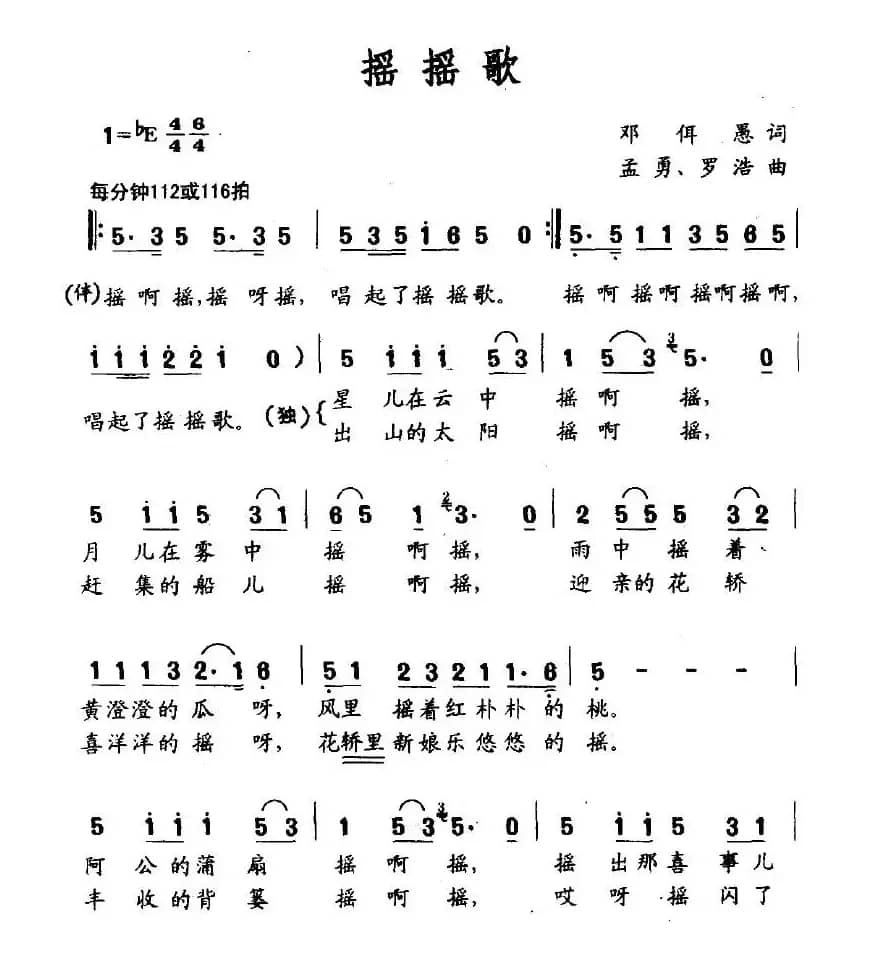 摇摇歌
1=♭E 4/4 6/4
邓佴愚词
孟勇、罗浩曲
每分钟112或116拍
5· 3 5 5· 3 5 | 5 3 5 i 6 5 0 :| 5· 5 1 1 3 5 6 5 |
(伴)摇啊摇,摇呀摇,唱起了摇摇歌。摇啊摇啊摇啊摇啊,
i i i 2 2 i 0 ) | 5 i i i 5 3 | 1 5 3 3 5· 0 |
唱起了摇摇歌。(独){星儿在云中摇啊摇,
出山的太阳摇啊摇,
5 i i 5 3 1 | 6 5 1 2 3· 0 | 2 5 5 5 3 2 |
月儿在雾中摇啊摇,雨中摇着、
赶集的船儿摇啊摇,迎亲的花轿
1 1 1 3 2· 1 6 | 5 1 2 3 2 1 1· 6 | 5 - - - |
黄澄澄的瓜呀,风里摇着红朴朴的桃。
喜洋洋的摇呀,花轿里新娘乐悠悠的摇。
5 i i i 5 3 | 1 5 3 3 5· 0 | 5 i i 5 3 1 |
阿公的蒲扇摇啊摇,摇出那喜事儿
丰收的背篓摇啊摇,哎呀摇闪了